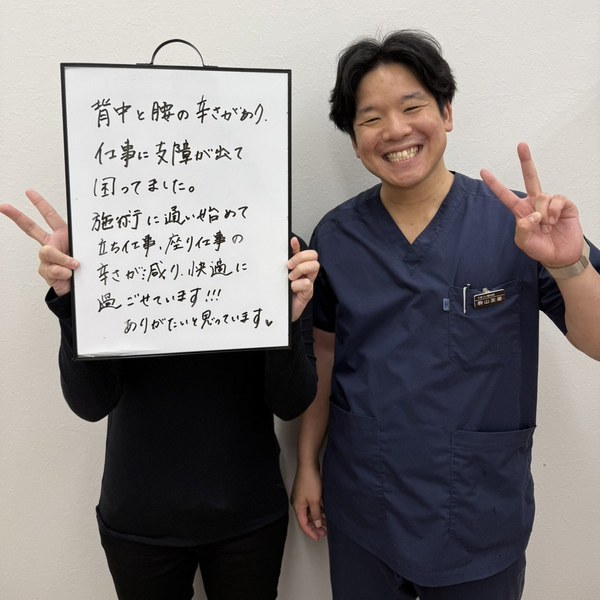 背中と腰の辛さがあり、
仕事に支障が出て
困ってました。
施術に通い始めて
立ち仕事、座り仕事の
辛さが減り、快適に
過ごせています!!!
ありがたいと思っています♥